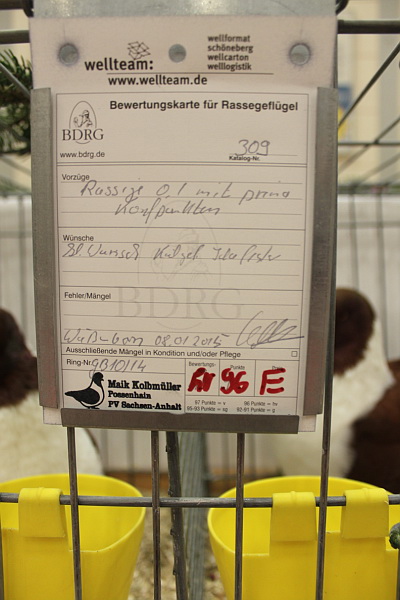 wellteam:
wellformat
schöneberg
wellcarton
welllogistik
www.wellteam.de
Bewertungskarte für Rassegeflügel
BDRG
www.bdrg.de
309
Katalog-Nr.
Vorzüge
Rassige 0.1 mit prima
Kopfpunkten
Wünsche
Fehler/Mängel
BDRG
08.01.2015
Ausschließende Mängel in Kondition und/oder Pflege
Ring-Nr. GB10/14
Bewertungs-
Punkte
Preis
hv 96 E
97 Punkte = v
96 Punkte = hv
95-93 Punkte = sg
92-91 Punkte = g
Maik Kolbmüller
Possenhain
PV Sachsen-Anhalt